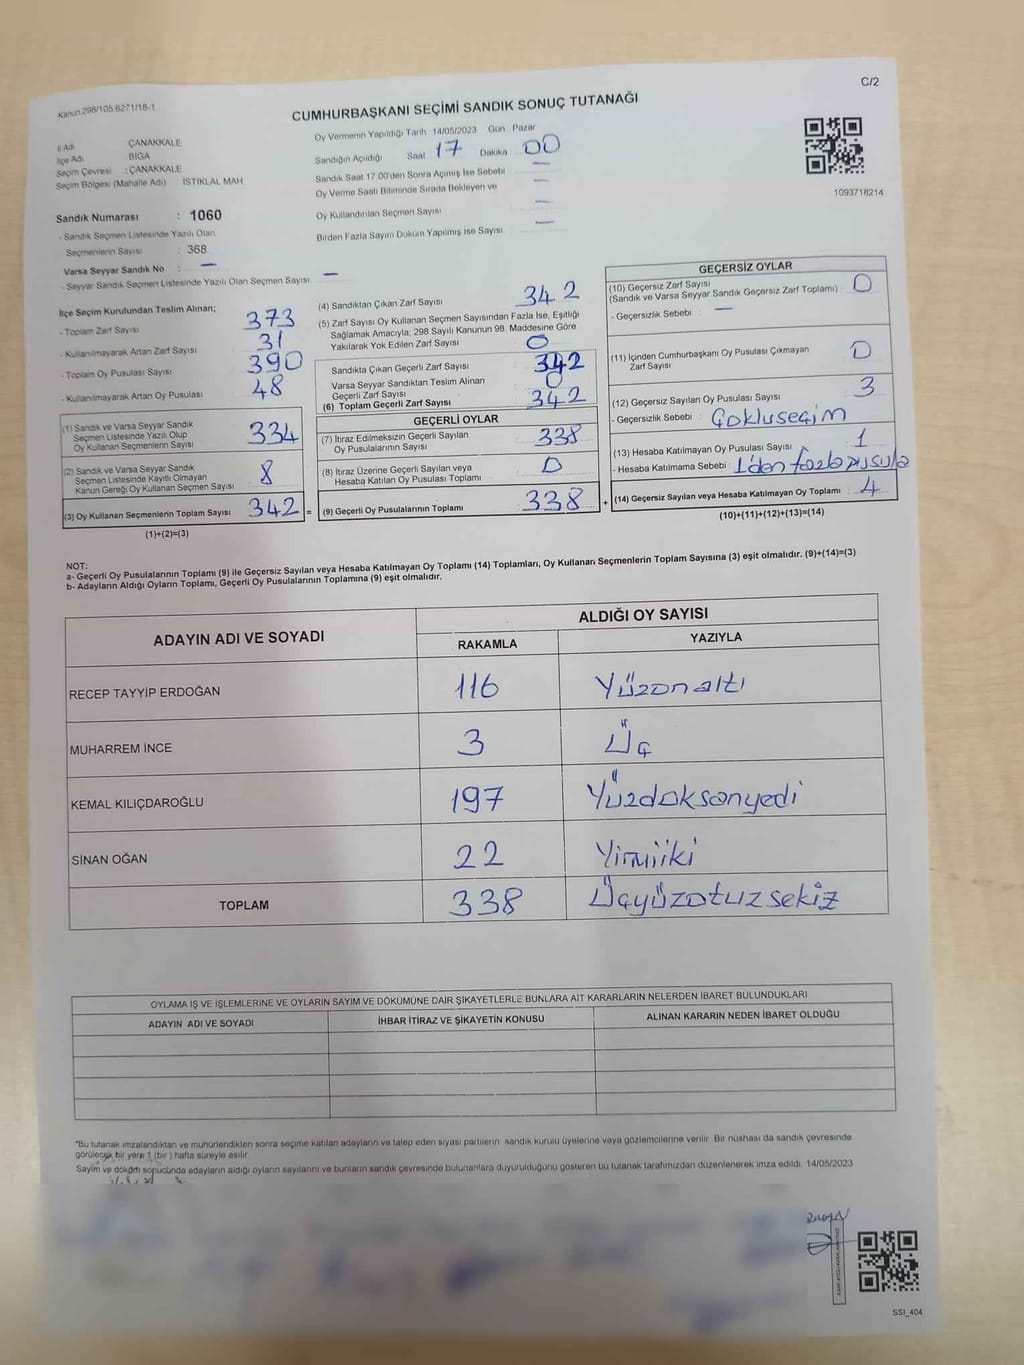 C/2
Kanun:298/105 6271/18-1
CUMHURBAŞKANI SEÇİMİ SANDIK SONUÇ TUTANAĞI
İl Adı ÇANAKKALE
İlçe Adı BİGA
Seçim Çevresi : ÇANAKKALE
Seçim Bölgesi (Mahalle Adı) : İSTİKLAL MAH
Sandık Numarası : 1060
- Sandık Seçmen Listesinde Yazılı Olan
Seçmenlerin Sayısı : 368
Varsa Seyyar Sandık No : —
- Seyyar Sandık Seçmen Listesinde Yazılı Olan Seçmen Sayısı —
Oy Vermenin Yapıldığı Tarih 14/05/2023 Gün Pazar
Sandığın Açıldığı Saat 17 Dakika 00
Sandık Saat 17.00'den Sonra Açımış İse Sebebi —
Oy Verme Saati Bitiminde Sırada Bekleyen ve —
Oy Kullandırılan Seçmen Sayısı —
Birden Fazla Sayım Döküm Yapılmış ise Sayısı —
1093718214
İlçe Seçim Kurulundan Teslim Alınan;
- Toplam Zarf Sayısı 373
- Kullanılmayarak Artan Zarf Sayısı 31
- Toplam Oy Pusulası Sayısı 390
- Kullanılmayarak Artan Oy Pusulası 48
(1) Sandık ve Varsa Seyyar Sandık
Seçmen Listesinde Yazılı Olup
Oy Kullanan Seçmenlerin Sayısı 334
(2) Sandık ve Varsa Seyyar Sandık
Seçmen Listesinde Kayıtlı Olmayan
Kanun Gereği Oy Kullanan Seçmen Sayısı 8
(3) Oy Kullanan Seçmenlerin Toplam Sayısı 342 =
(1)+(2)=(3)
(4) Sandıktan Çıkan Zarf Sayısı 342
(5) Zarf Sayısı Oy Kullanan Seçmen Sayısından Fazla İse, Eşitliği
Sağlamak Amacıyla; 298 Sayılı Kanunun 98. Maddesine Göre
Yakılarak Yok Edilen Zarf Sayısı 0
Sandıkta Çıkan Geçerli Zarf Sayısı 342
Varsa Seyyar Sandıktan Teslim Alınan
Geçerli Zarf Sayısı 0
(6) Toplam Geçerli Zarf Sayısı 342
GEÇERLİ OYLAR
(7) İtiraz Edilmeksizin Geçerli Sayılan
Oy Pusulalarının Sayısı 338
(8) İtiraz Üzerine Geçerli Sayılan veya
Hesaba Katılan Oy Pusulası Toplamı 0
(9) Geçerli Oy Pusulalarının Toplamı 338 +
GEÇERSİZ OYLAR
(10) Geçersiz Zarf Sayısı
(Sandık ve Varsa Seyyar Sandık Geçersiz Zarf Toplamı) 0
- Geçersizlik Sebebi : —
(11) İçinden Cumhurbaşkanı Oy Pusulası Çıkmayan
Zarf Sayısı 0
(12) Geçersiz Sayılan Oy Pusulası Sayısı 3
- Geçersizlik Sebebi : Çokluseçim
(13) Hesaba Katılmayan Oy Pusulası Sayısı 1
- Hesaba Katılmama Sebebi 1'den fazla pusula
(14) Geçersiz Sayılan veya Hesaba Katılmayan Oy Toplamı : 4
(10)+(11)+(12)+(13)=(14)
NOT:
a- Geçerli Oy Pusulalarının Toplamı (9) ile Geçersiz Sayılan veya Hesaba Katılmayan Oy Toplamı (14) Toplamları, Oy Kullanan Seçmenlerin Toplam Sayısına (3) eşit olmalıdır. (9)+(14)=(3)
b- Adayların Aldığı Oyların Toplamı, Geçerli Oy Pusulalarının Toplamına (9) eşit olmalıdır.
ADAYIN ADI VE SOYADI
ALDIĞI OY SAYISI
RAKAMLA YAZIYLA
RECEP TAYYİP ERDOĞAN 116 Yüzonaltı
MUHARREM İNCE 3 Üç
KEMAL KILIÇDAROĞLU 197 Yüzdoksanyedi
SİNAN OĞAN 22 Yirmiiki
TOPLAM 338 Üçyüzotuzsekiz
OYLAMA İŞ VE İŞLEMLERİNE VE OYLARIN SAYIM VE DÖKÜMÜNE DAİR ŞİKAYETLERLE BUNLARA AİT KARARLARIN NELERDEN İBARET BULUNDUKLARI
ADAYIN ADI VE SOYADI İHBAR İTİRAZ VE ŞİKAYETİN KONUSU ALINAN KARARIN NEDEN İBARET OLDUĞU
"Bu tutanak imzalandıktan ve mühürlendikten sonra seçime katılan adayların ve talep eden siyasi partilerin sandık kurulu üyelerine veya gözlemcilerine verilir. Bir nüshası da sandık çevresinde
görülecek bir yere 1 (bir ) hafta süreyle asılır.
Sayım ve döküm sonucunda adayların aldığı oyların sayılarını ve bunların sandık çevresinde bulunanlara duyurulduğunu gösteren bu tutanak tarafımızdan düzenlenerek imza edildi. 14/05/2023
SSI_404